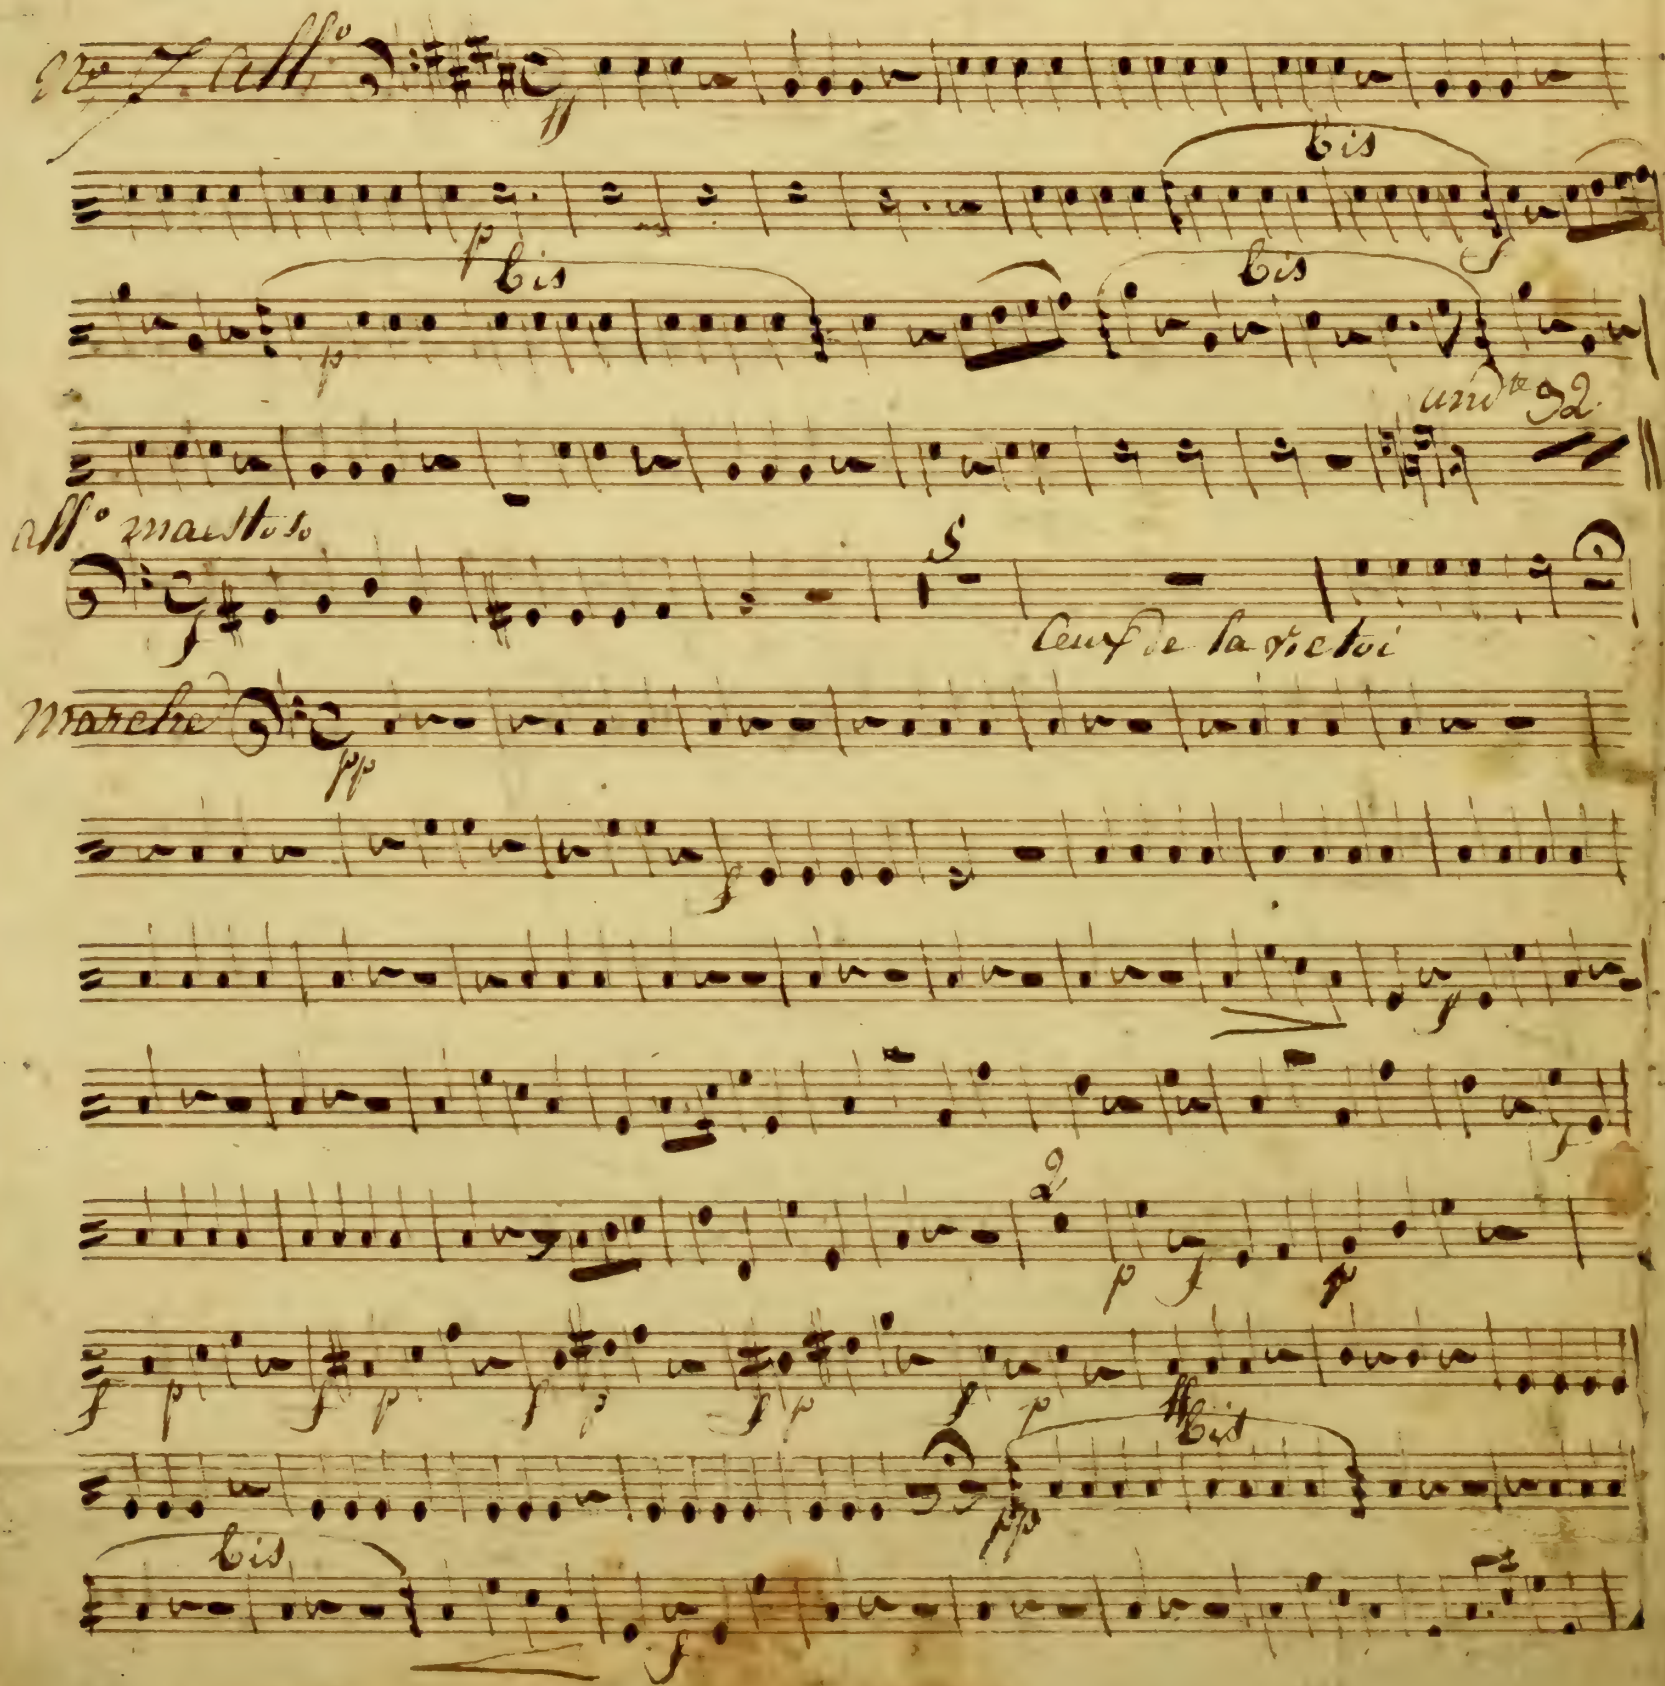 No 7. allo
ff
bis
p f
bis bis
p
andte 92.
allo maestoso
5
f
de la victoi
Marche
pp
f
f
f
2
p f p
f p f p f p f p f p ff
bis
pp
bis
f